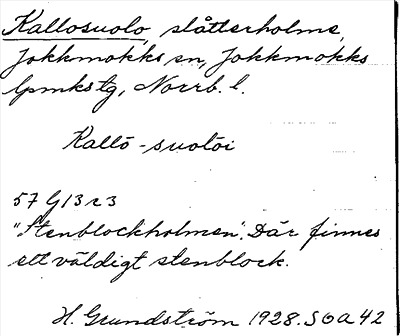 Kallosuolo, slåtterholme,
Jokkmokks sn, Jokkmokks
lpmkstg, Norrb. l.
Kallō-suolōi
57 G13 r3
"Stenblockholmen". Där finnes
ett väldigt stenblock.
H. Grundström 1928. SOA 42